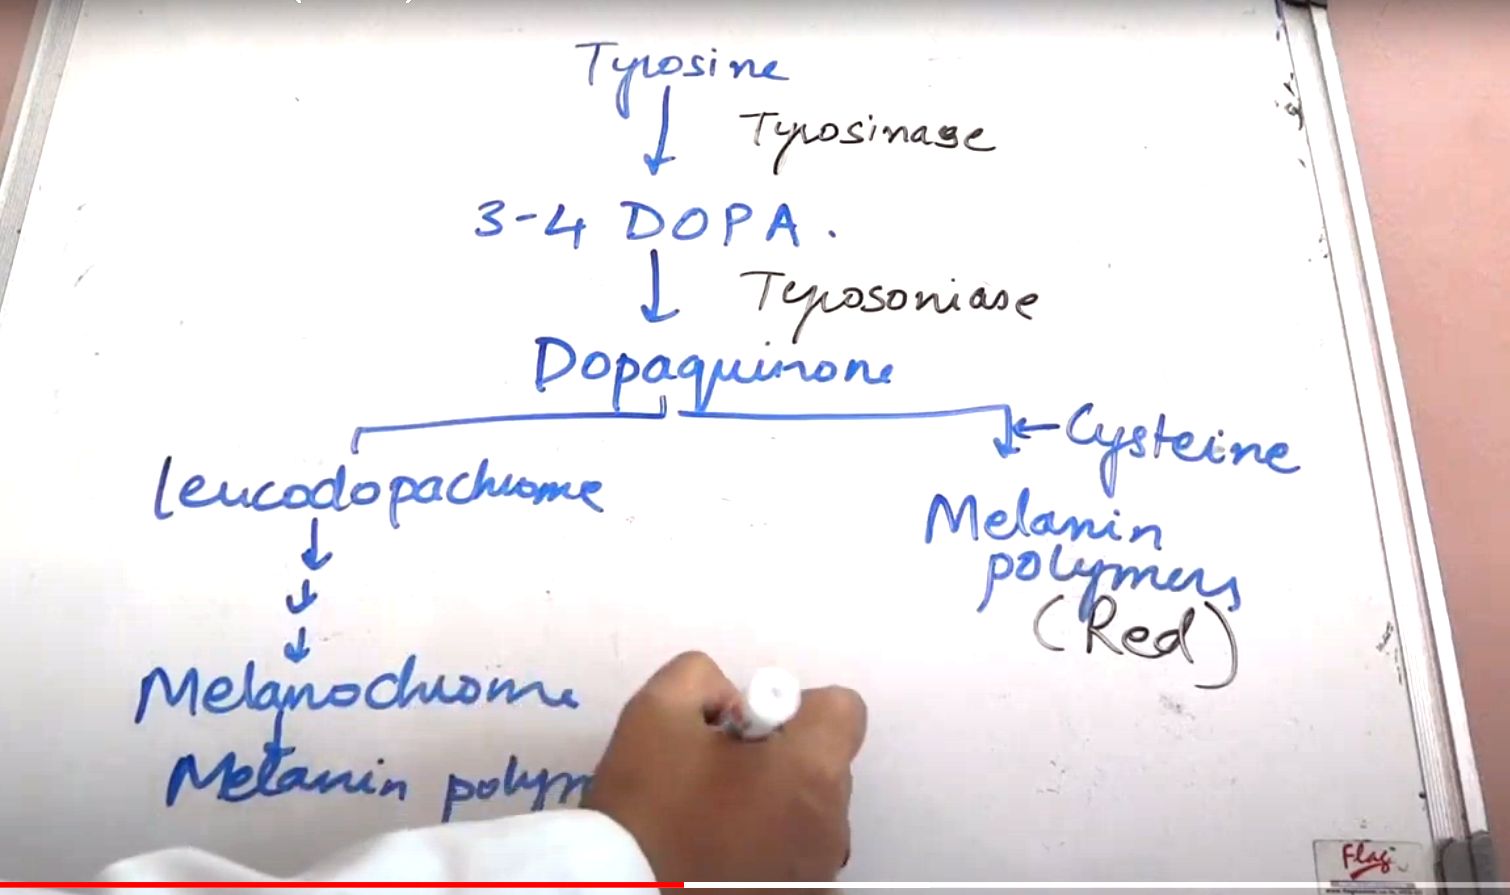 Tyrosine
Tyrosinase
3-4 DOPA.
Tyrosoniase
Dopaquinone
Cysteine
leucodopachrome
Melanin
polymers
(Red)
Melanochrome
Melanin polym
Flag